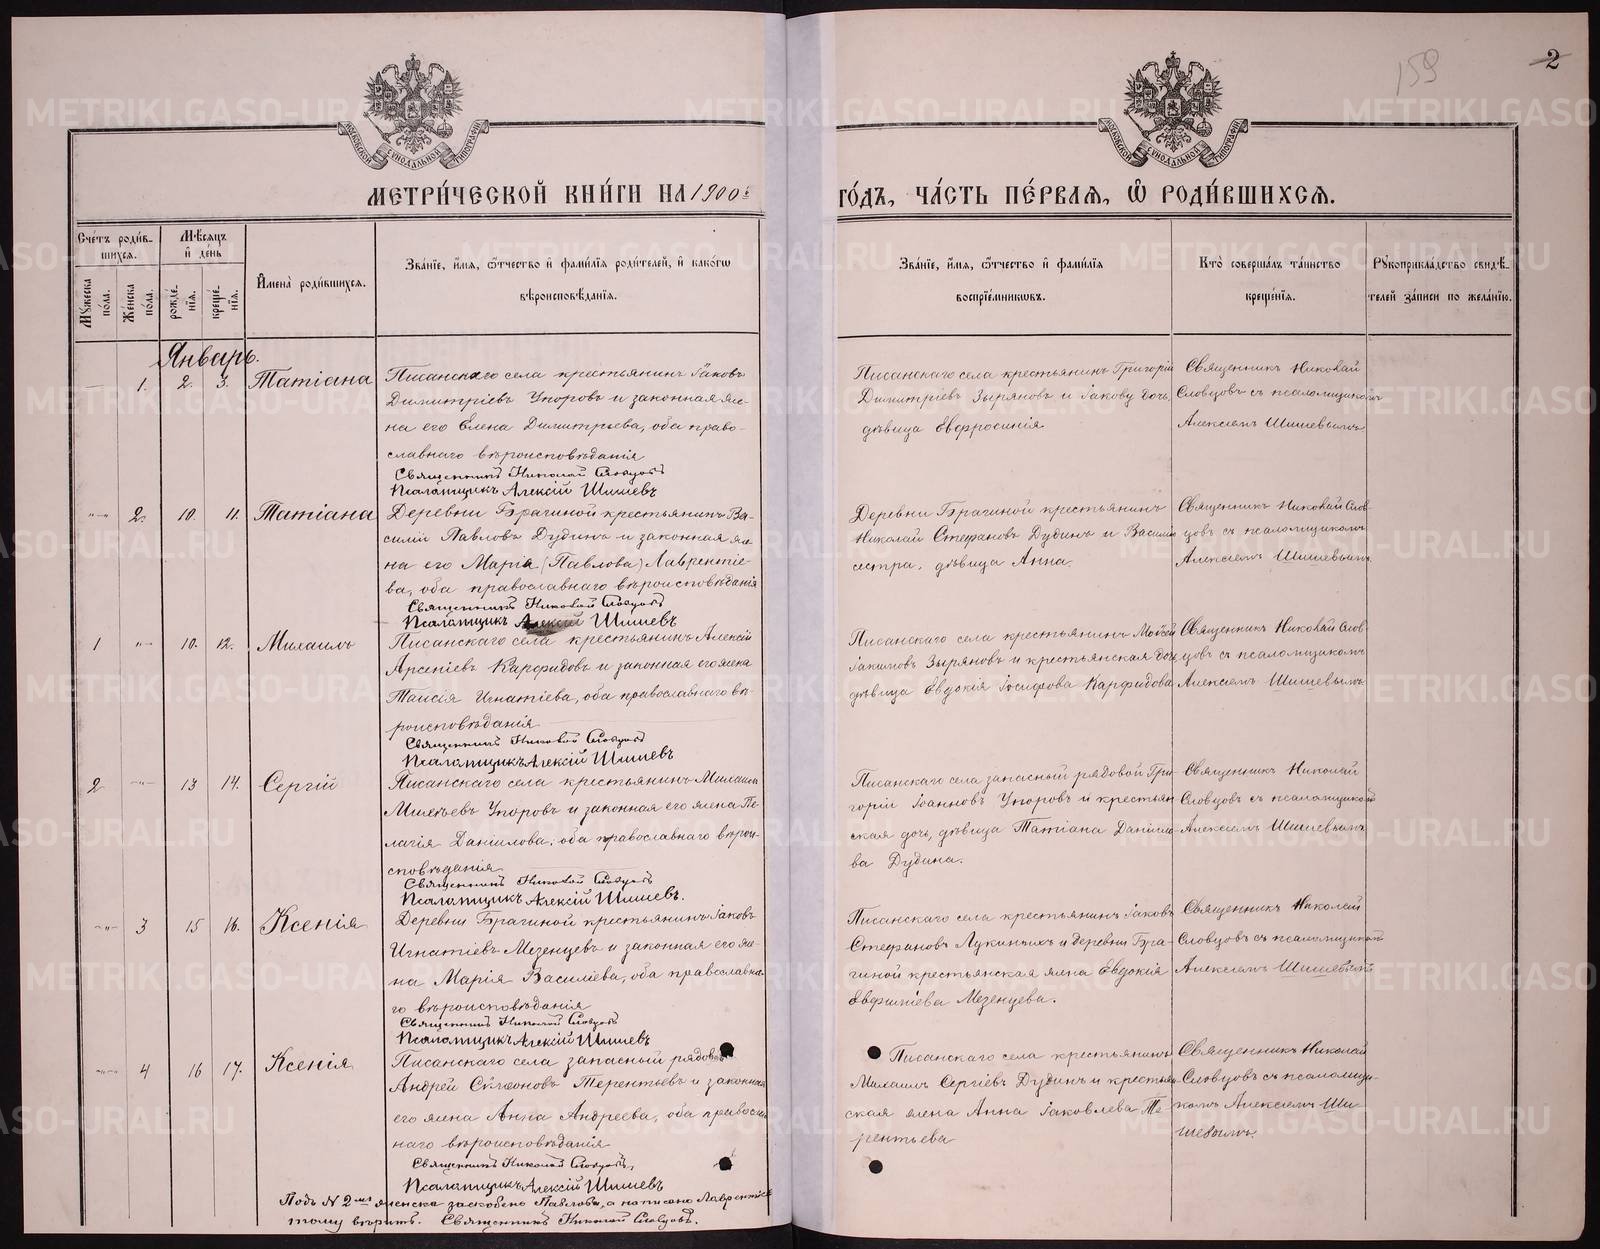 159
2
МОСКОВСКОЙ СѴНОДАЛЬНОЙ ТИПОГРАФИИ
МОСКОВСКОЙ СѴНОДАЛЬНОЙ ТИПОГРАФИИ
МЕТРИ́ЧЕСКОЙ КНИ́ГИ НА 1900й
ГО́ДЪ, ЧА́СТЬ ПЕ́РВАѦ, Ѽ РОДИ́ВШИХСѦ.
Сче́тъ роди́в-
шихсѧ.
Мꙋжеска
пола.
Же́нска
по́ла.
Мѣ́сѧцъ
и҆ де́нь
рожде́-
нїѧ.
креще́-
нїѧ.
И҆мена̀ роди́вшихсѧ.
Зва́нїе, и҆́мѧ, ѻ҆́тчество и҆ фами́лїѧ роди́телей, и҆ како́гѡ
вѣроисповѣ́данїѧ.
Зва́нїе, и҆́мѧ, ѻ҆́тчество и҆ фами́лїѧ
воспрїе́мникѡвъ.
Кто̀ соверша́лъ та́инство
креще́нїѧ.
Рꙋкоприкла́дство свидѣ́-
телей за́писи по жела́нїю.
Январь.
— 1. 2. 3. Татіана
Писанскаго села крестьянинъ Іаковъ
Димитріевъ Упоровъ и законная же-
на его Елена Димитрьева, оба право-
славнаго вѣроисповѣданія
Священникъ Николай Словцовъ
Псаломщикъ Алексій Шишевъ
Писанскаго села крестьянинъ Григорій
Димитріевъ Зыряновъ и Іакову дочь,
дѣвица Евфросинія
Священникъ Николай
Словцовъ съ псаломщикомъ
Алексіемъ Шишевымъ
"—" 2. 10. 11. Татіана
Деревни Брагиной крестьянинъ Ва-
силій Павловъ Дудинъ и законная же-
на его Марія (Павлова) Лаврентіе-
ва, оба православнаго вѣроисповѣданія
Священникъ Николай Словцовъ
Псаломщикъ Алексій Шишевъ
Деревни Брагиной крестьянинъ
Николай Стефановъ Дудинъ и Василію
сестра, дѣвица Анна.
Священникъ Николай Слов-
цовъ съ псаломщикомъ
Алексіемъ Шишевымъ
1 "—" 10. 12. Михаилъ
Писанскаго села крестьянинъ Алексій
Арсеніевъ Карфидовъ и законная его жена
Таисія Игнатіева, оба православнаго вѣ-
роисповѣданія
Священникъ Николай Словцовъ
Псаломщикъ Алексій Шишевъ
Писанскаго села крестьянинъ Моѵсей
Іакимовъ Зыряновъ и крестьянская дочь
дѣвица Евдокія Іосифова Карфидова
Священникъ Николай Слов-
цовъ съ псаломщикомъ
Алексіемъ Шишевымъ
2 "—" 13 14. Сергій
Писанскаго села крестьянинъ Михаилъ
Михѣевъ Упоровъ и законная его жена Пе-
лагія Даніилова, оба православнаго вѣрои-
сповѣданія
Священникъ Николай Словцовъ
Псаломщикъ Алексій Шишевъ.
Писанскаго села запасный рядовой Гри-
горій Іоанновъ Упоровъ и крестьян-
ская дочь, дѣвица Татіана Даніило-
ва Дудина.
Священникъ Николай
Словцовъ съ псаломщикомъ
Алексіемъ Шишевымъ
"—" 3 15 16. Ксенія
Деревни Брагиной крестьянинъ Іаковъ
Игнатіевъ Мезенцевъ и законная его же-
на Марія Василіева, оба православна-
го вѣроисповѣданія
Священникъ Николай Словцовъ
Псаломщикъ Алексій Шишевъ
Писанскаго села крестьянинъ Іаковъ
Стефановъ Лукиныхъ и деревни Бра-
гиной крестьянская жена Евдокія
Евфиміева Мезенцева.
Священникъ Николай
Словцовъ съ псаломщикомъ
Алексіемъ Шишевымъ
"—" 4 16 17. Ксенія
Писанскаго села запасный рядовой
Андрей Сѵмеоновъ Терентьевъ и законная
его жена Анна Андреева, оба православ-
наго вѣроисповѣданія
Священникъ Николай Словцовъ,
Псаломщикъ Алексій Шишевъ
Писанскаго села крестьянинъ
Михаилъ Сергіевъ Дудинъ и крестьян-
ская жена Анна Іаковлева Те-
рентьева
Священникъ Николай
Словцовъ съ псаломщи-
комъ Алексіемъ Ши-
шевымъ.
Подъ N 2мъ женска заскоблено Павлова, а написано Лаврентіева
тому вѣрить. Священникъ Николай Словцовъ.
METRIKI.GASO-URAL.RU